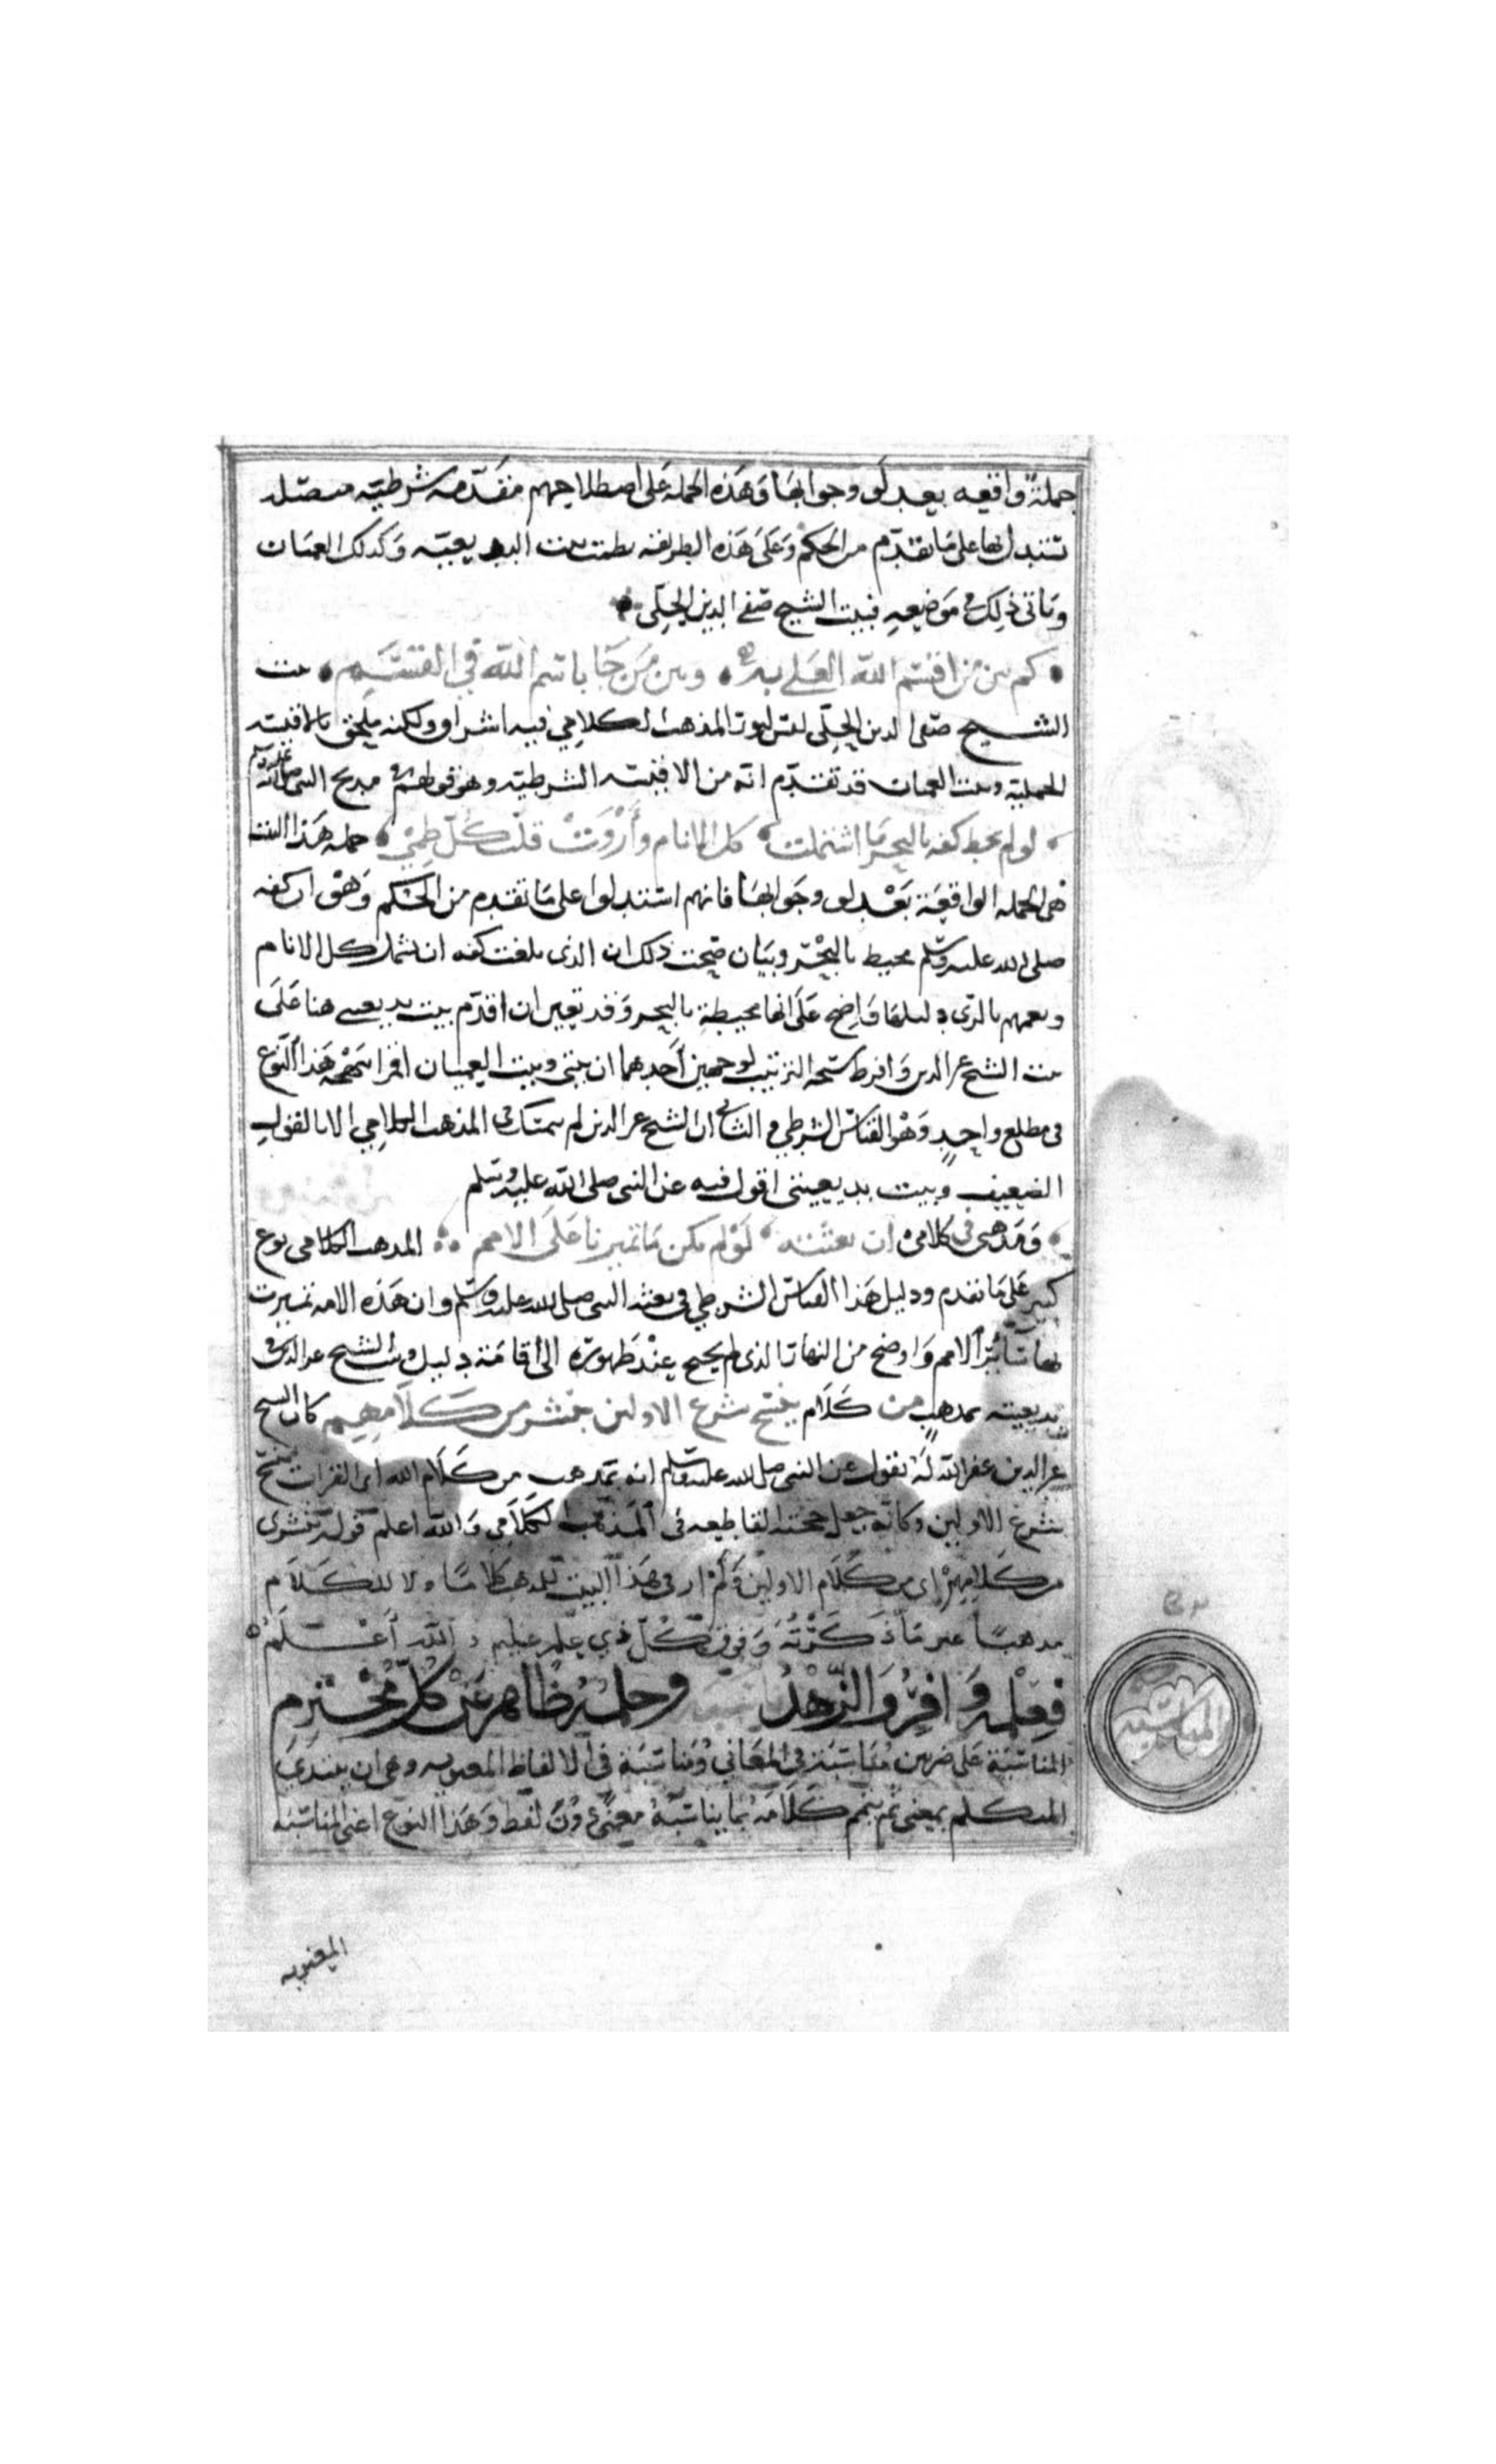 جملة واقعه بعد لو وجوابها وهذه الجملة على اصطلاحهم مقدمه شرطيه متصله
تستدل بها على ما تقدم من الحكم وعلى هذه الطريقه نظمت بيت البديعيه وكذلك العميان
وياتى ذلك فى موضعه فبيت الشيخ صفى الدين الحلى
كم بين من اقسم الله العلى به وبين من جا باسم الله فى القسم بيت
الشيخ صفى الدين الحلى ليس لنور المذهب الكلامي فيه اشراق ولكنه ملحق بالاقيسه
الحمليه وبيت العميان قد تقدم انه من الاقيسه الشرطيه وهو قولهم فى مديح النبى صلى الله عليه وسلم
لو لم يحط كفه بالبحر ما اشتملت كل الانام وأروت قلب كل ظمى جمله هذا البيت
هى الجمله الواقعة بعد لو وجوابها فانهم استدلوا على ما تقدم من الحكم وهو ان كفه
صلى الله عليه وسلم محيط بالبحر وبيان صحت ذلك ان الذى بلغت كفه ان تشمل كل الانام
وتعمهم بالرى دليلها واضح على انها محيطة بالبحر وقد تعين ان اقدم بيت بديعيتى هنا على
بيت الشيخ عز الدين وافرط سبحه الترتيب لوجهين أحدهما ان بيتى وبيت العميان افرا سهمه هذا النوع
فى مطلع واحد وهو القياس الشرطي والثانى ان الشيخ عز الدين لم يتمسك فى المذهب الكلامي الا بالقول
الضعيف وبيت بديعيتى اقول فيه عن النبى صلى الله عليه وسلم
ومذهبى فى كلامى ان بعثته لو لم تكن ما تميزنا على الامم المذهب الكلامى نوع
كبير على ما تقدم ودليل هذا القياس الشرطي فى بعثه النبى صلى الله عليه وسلم وان هذه الامه تميزت
بها على سائر الامم واوضح من النهار الذى لم يحتج عند ظهوره الى أقامة دليل وبيت الشيخ عز الدين فى
بديعيته بمذهب من كلام ينسخ شرع الاولين من كلامهم كان الشيخ
عز الدين غفر الله له يقول عن النبى صلى الله عليه وسلم انه تمذهب من كلام الله اى القران ينسخ
شرع الاولين وكانه جعل حجته القاطعه فى المذهب الكلامي والله اعلم قوله
من كلامهم اى من كلام الاولين ولم ار فى هذا البيت للمذهب كلاما ولا للكلام
مذهبا غير ما ذكرته وفوق كل ذي علم عليم والله أعلم
فعلمه وافر والزهد ناسبه وحلمه ظاهر عن كل مجترم
المناسبه
المناسبة على ضربين مناسبة فى المعانى ومناسبة فى الالفاظ المعنويه وهى ان يبتدى
المتكلم بمعنى ثم يتمم كلامه بما يناسبه معنى دون لفظ وهذا النوع اعنى المناسبه
المعنويه